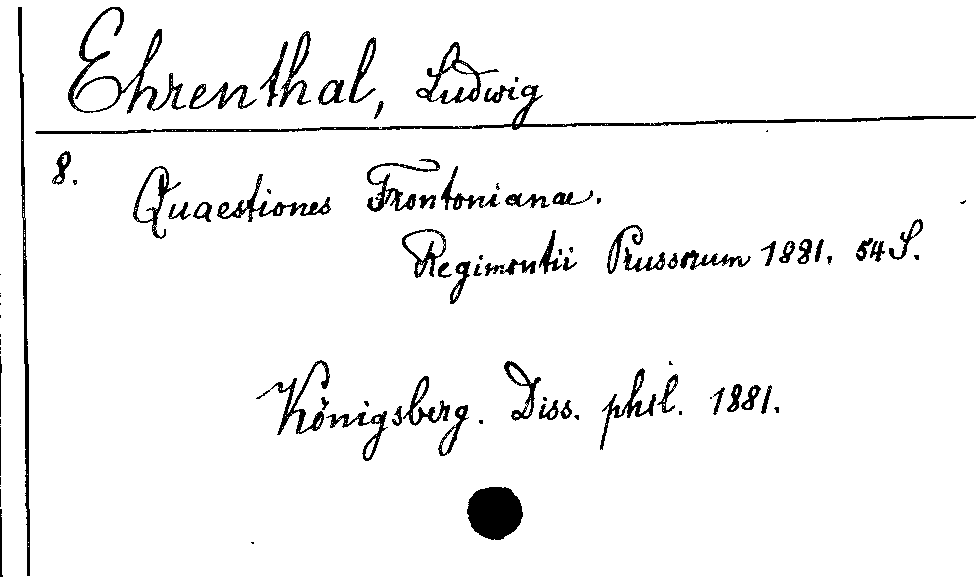 Ehrenthal, Ludwig
8. Quaestiones Frontonianae.
Regimontii Prussorum 1881. 54 S.
Königsberg. Diss. phil. 1881.